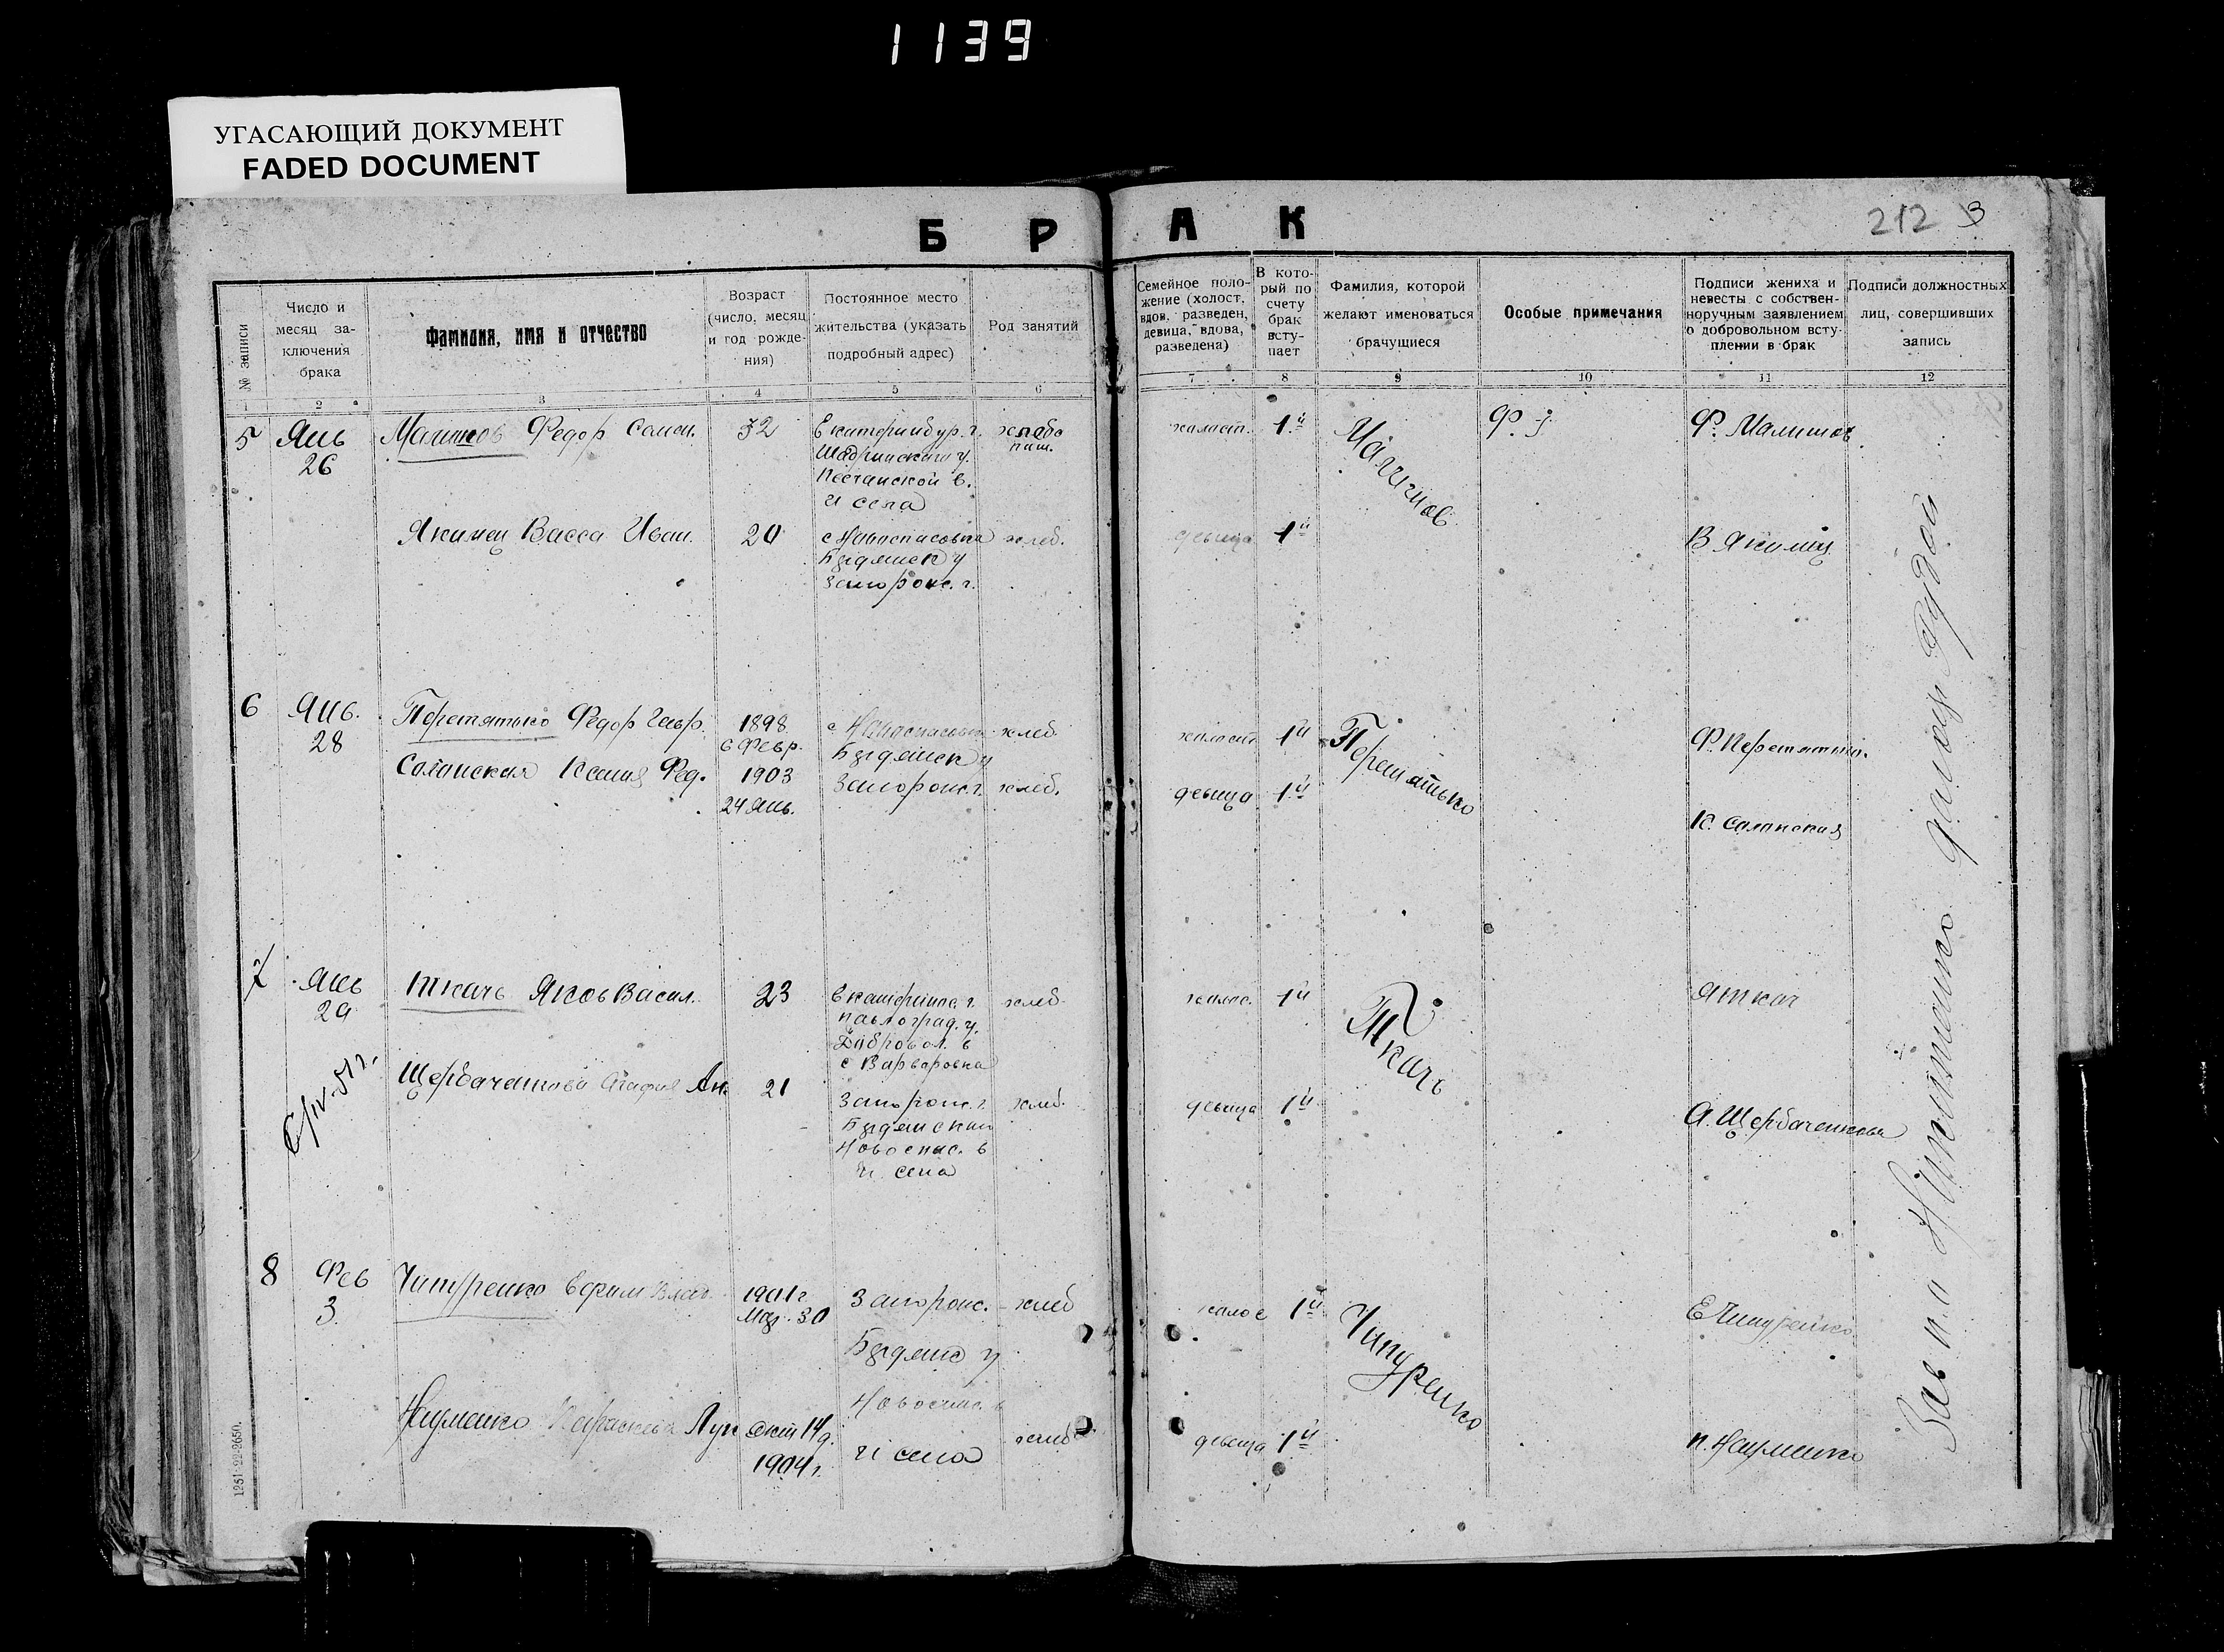 1139
УГАСАЮЩИЙ ДОКУМЕНТ
FADED DOCUMENT
БРАК
212 3
№ записи
Число и
месяц за-
ключения
брака
Фамилия, имя и отчество
Возраст
(число, месяц
и год рожде-
ния)
Постоянное место
жительства (указать
подробный адрес)
Род занятий
Семейное поло-
жение (холост,
вдов, разведен,
девица, вдова,
разведена)
В кото-
рый по
счету
брак
всту-
пает
Фамилия, которой
желают именоваться
брачущиеся
Особые примечания
Подписи жениха и
невесты с собствен-
норучным заявлением
о добровольном всту-
плении в брак
Подписи должностных
лиц, совершивших
запись
1 2 3 4 5 6 7 8 9 10 11 12
5 Янв Федор 32 Екатеринбур. г. хлебо холост. 1й
26 Шадринский у. паш.
Песчанской в.
и села
Якимец Васса Иван. 20 с Новоспасовка хлеб. девица 1й В Якимец
Бердянск у
Запорож. г.
6 Янв. Перетятько Федор Гавр. 1898 с Новоспасовка хлеб холост 1й Перетятько Ф. Перетятько
28 6 Февр. Бердянск у
Ксения Фед. 1903 Запорож. г. хлеб. девица 1й
24 Янв.
7 Янв Ткачь Яков Васил. 23 Екатеринос. г. хлеб холос. 1й Ткачь Я Ткач
29 Павлоград. у.
в
с Варваровка
Щербаченкова Агафия 21 Запорож. г. хлеб. девица 1й А. Щербаченкова
Бердянский
Новоспас. в
и села
8 Фев Чипуренко Ефим Влад. 1901 г Запорож. хлеб холос 1й Чипуренко Е Чипуренко
3. 30 Бердянс у
Новоспас. в
Науменко Параскева Лук Окт 14 д. и села хлеб девица 1й П. Науменко
1904 г.
1251-22-2650.